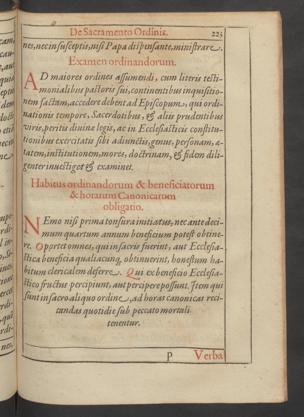 De Sacramento Ordinis. 223
nes, nec in susceptis, nisi Papa dispensante, ministrare.
Examen ordinandorum.
AD maiores ordines assumendi, cum literis testi-
monialibus pastoris sui, continentibus inquisitio-
nem factam, accedere debent ad Episcopum, qui ordi-
nationis tempore, Sacerdotibus, & aliis prudentibus
viris, peritis divinæ legis, ac in Ecclesiasticis constitu-
tionibus exercitatis sibi adiunctis, genus, personam, æ-
tatem, institutionem, mores, doctrinam, & fidem dili-
genter investiget & examinet.
Habitus ordinandorum & beneficiatorum
& horarum Canonicarum
obligatio.
NEmo nisi prima tonsura initiatus, nec ante deci-
mum quartum annum beneficium potest obtine-
re. Oportet omnes, qui in sacris fuerint, aut Ecclesia-
stica beneficia qualiacunq; obtinuerint, honestum ha-
bitum clericalem deferre. Qui ex beneficio Ecclesia-
stico fructus percipiunt, aut percipere possunt, Item qui
sunt in sacro aliquo ordine, ad horas canonicas reci-
tandas quotidie sub peccato mortali
tenentur.
P Verba